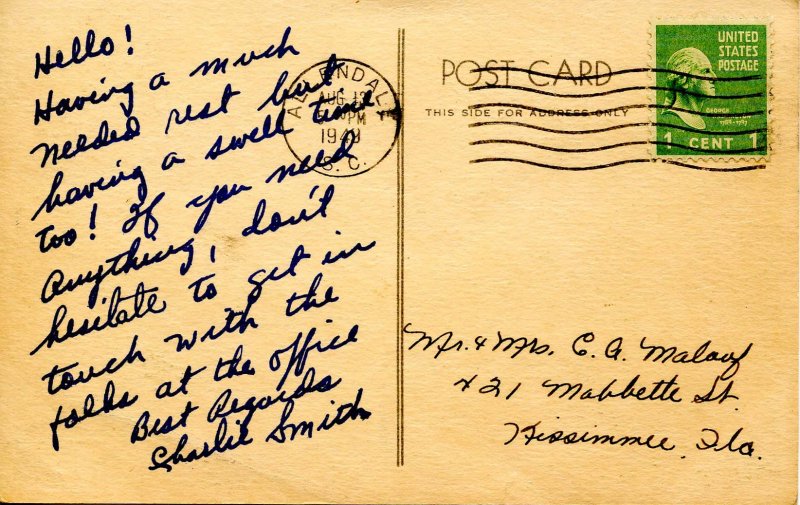 Hello!
Having a much
needed rest but
having a swell time
too! If you need
anything, don't
hesitate to get in
touch with the
folks at the office
Best Regards
Charlie Smith
ALLENDALE
AUG 12
PM
1949
S. C.
POST CARD
THIS SIDE FOR ADDRESS ONLY
UNITED
STATES
POSTAGE
GEORGE
1 CENT 1
Mr. & Mrs. C. A. Malouf
421 Mabbette St.
Kissimmee, Fla.